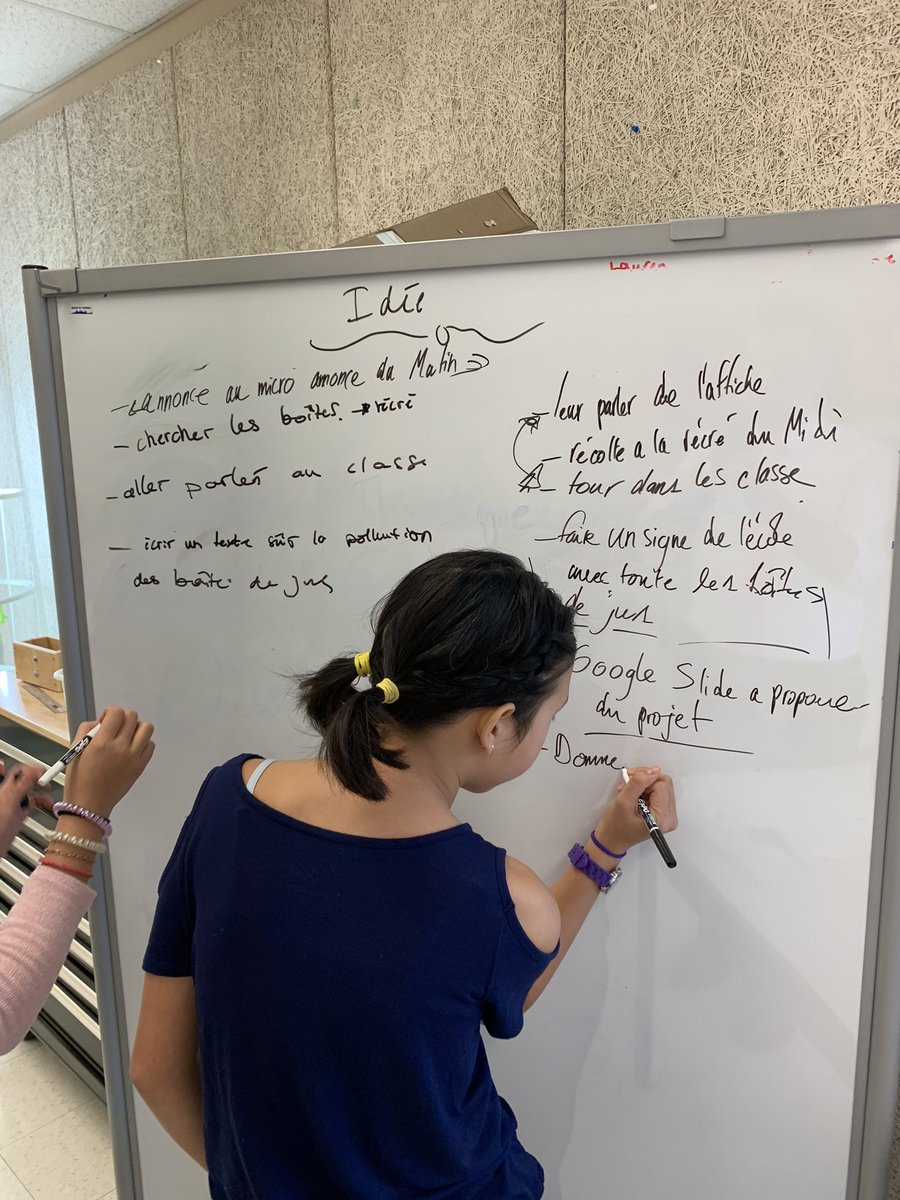 Idée
- L'annonce au micro annonce du Matin
- chercher les boîtes. récré
- aller parler au classe
- icrir un texte sur la pollution
des boîte de jus
- leur parler de l'affiche
- récolte a la récré du Midi
- tour dans les classe
- faire un signe de l'école
avec toute les boîtes
de jus
Google Slide a propoue
du projet
- Donne